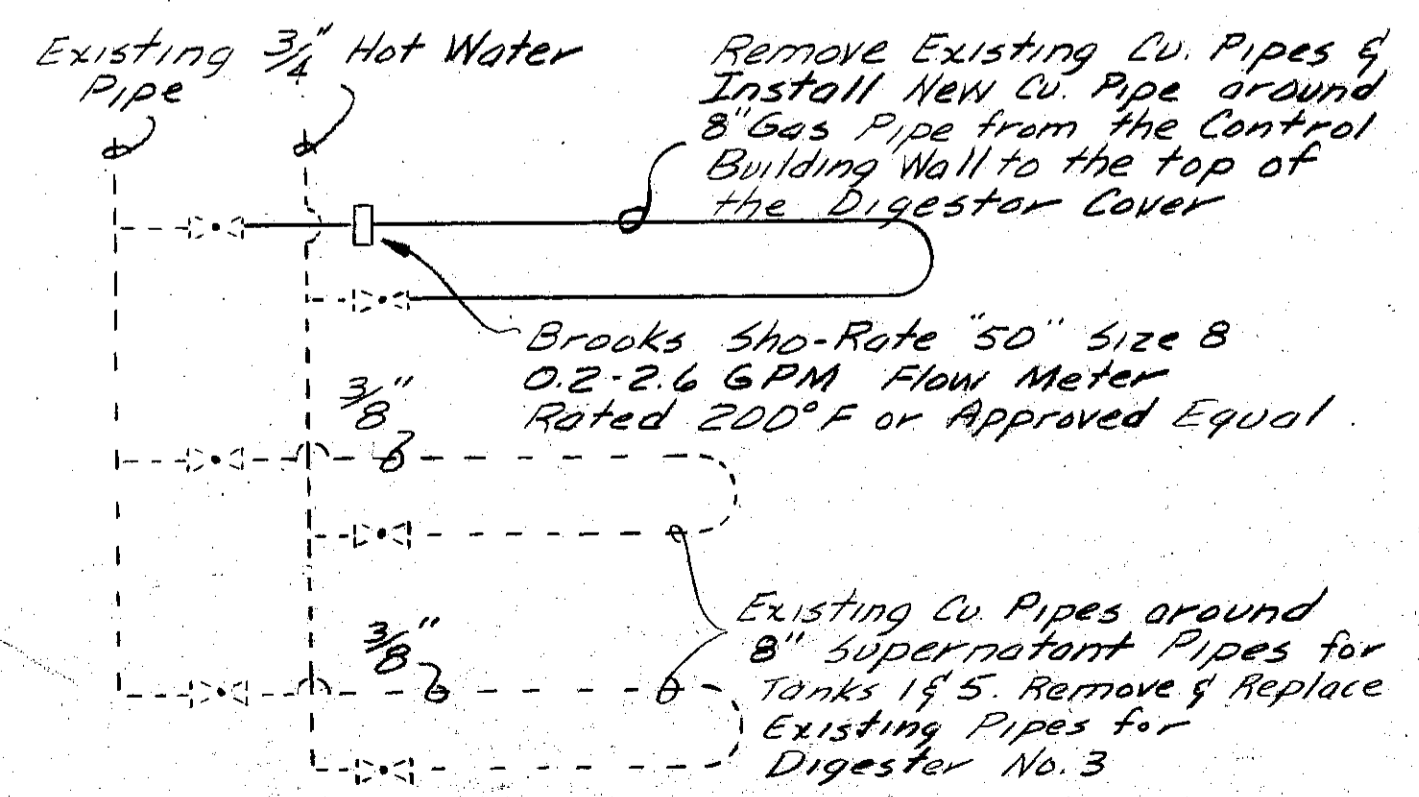 Existing 3/4" Hot Water
Pipe
Remove Existing Cu. Pipes &
Install New Cu. Pipe around
8" Gas Pipe from the Control
Building Wall to the top of
the Digestor Cover
Brooks Sho-Rate "50" Size 8
0.2-2.6 GPM Flow Meter
Rated 200°F or Approved Equal.
3/8"
3/8"
Existing Cu. Pipes around
8" Supernatant Pipes for
Tanks 1 & 5. Remove & Replace
Existing Pipes for
Digester No. 3